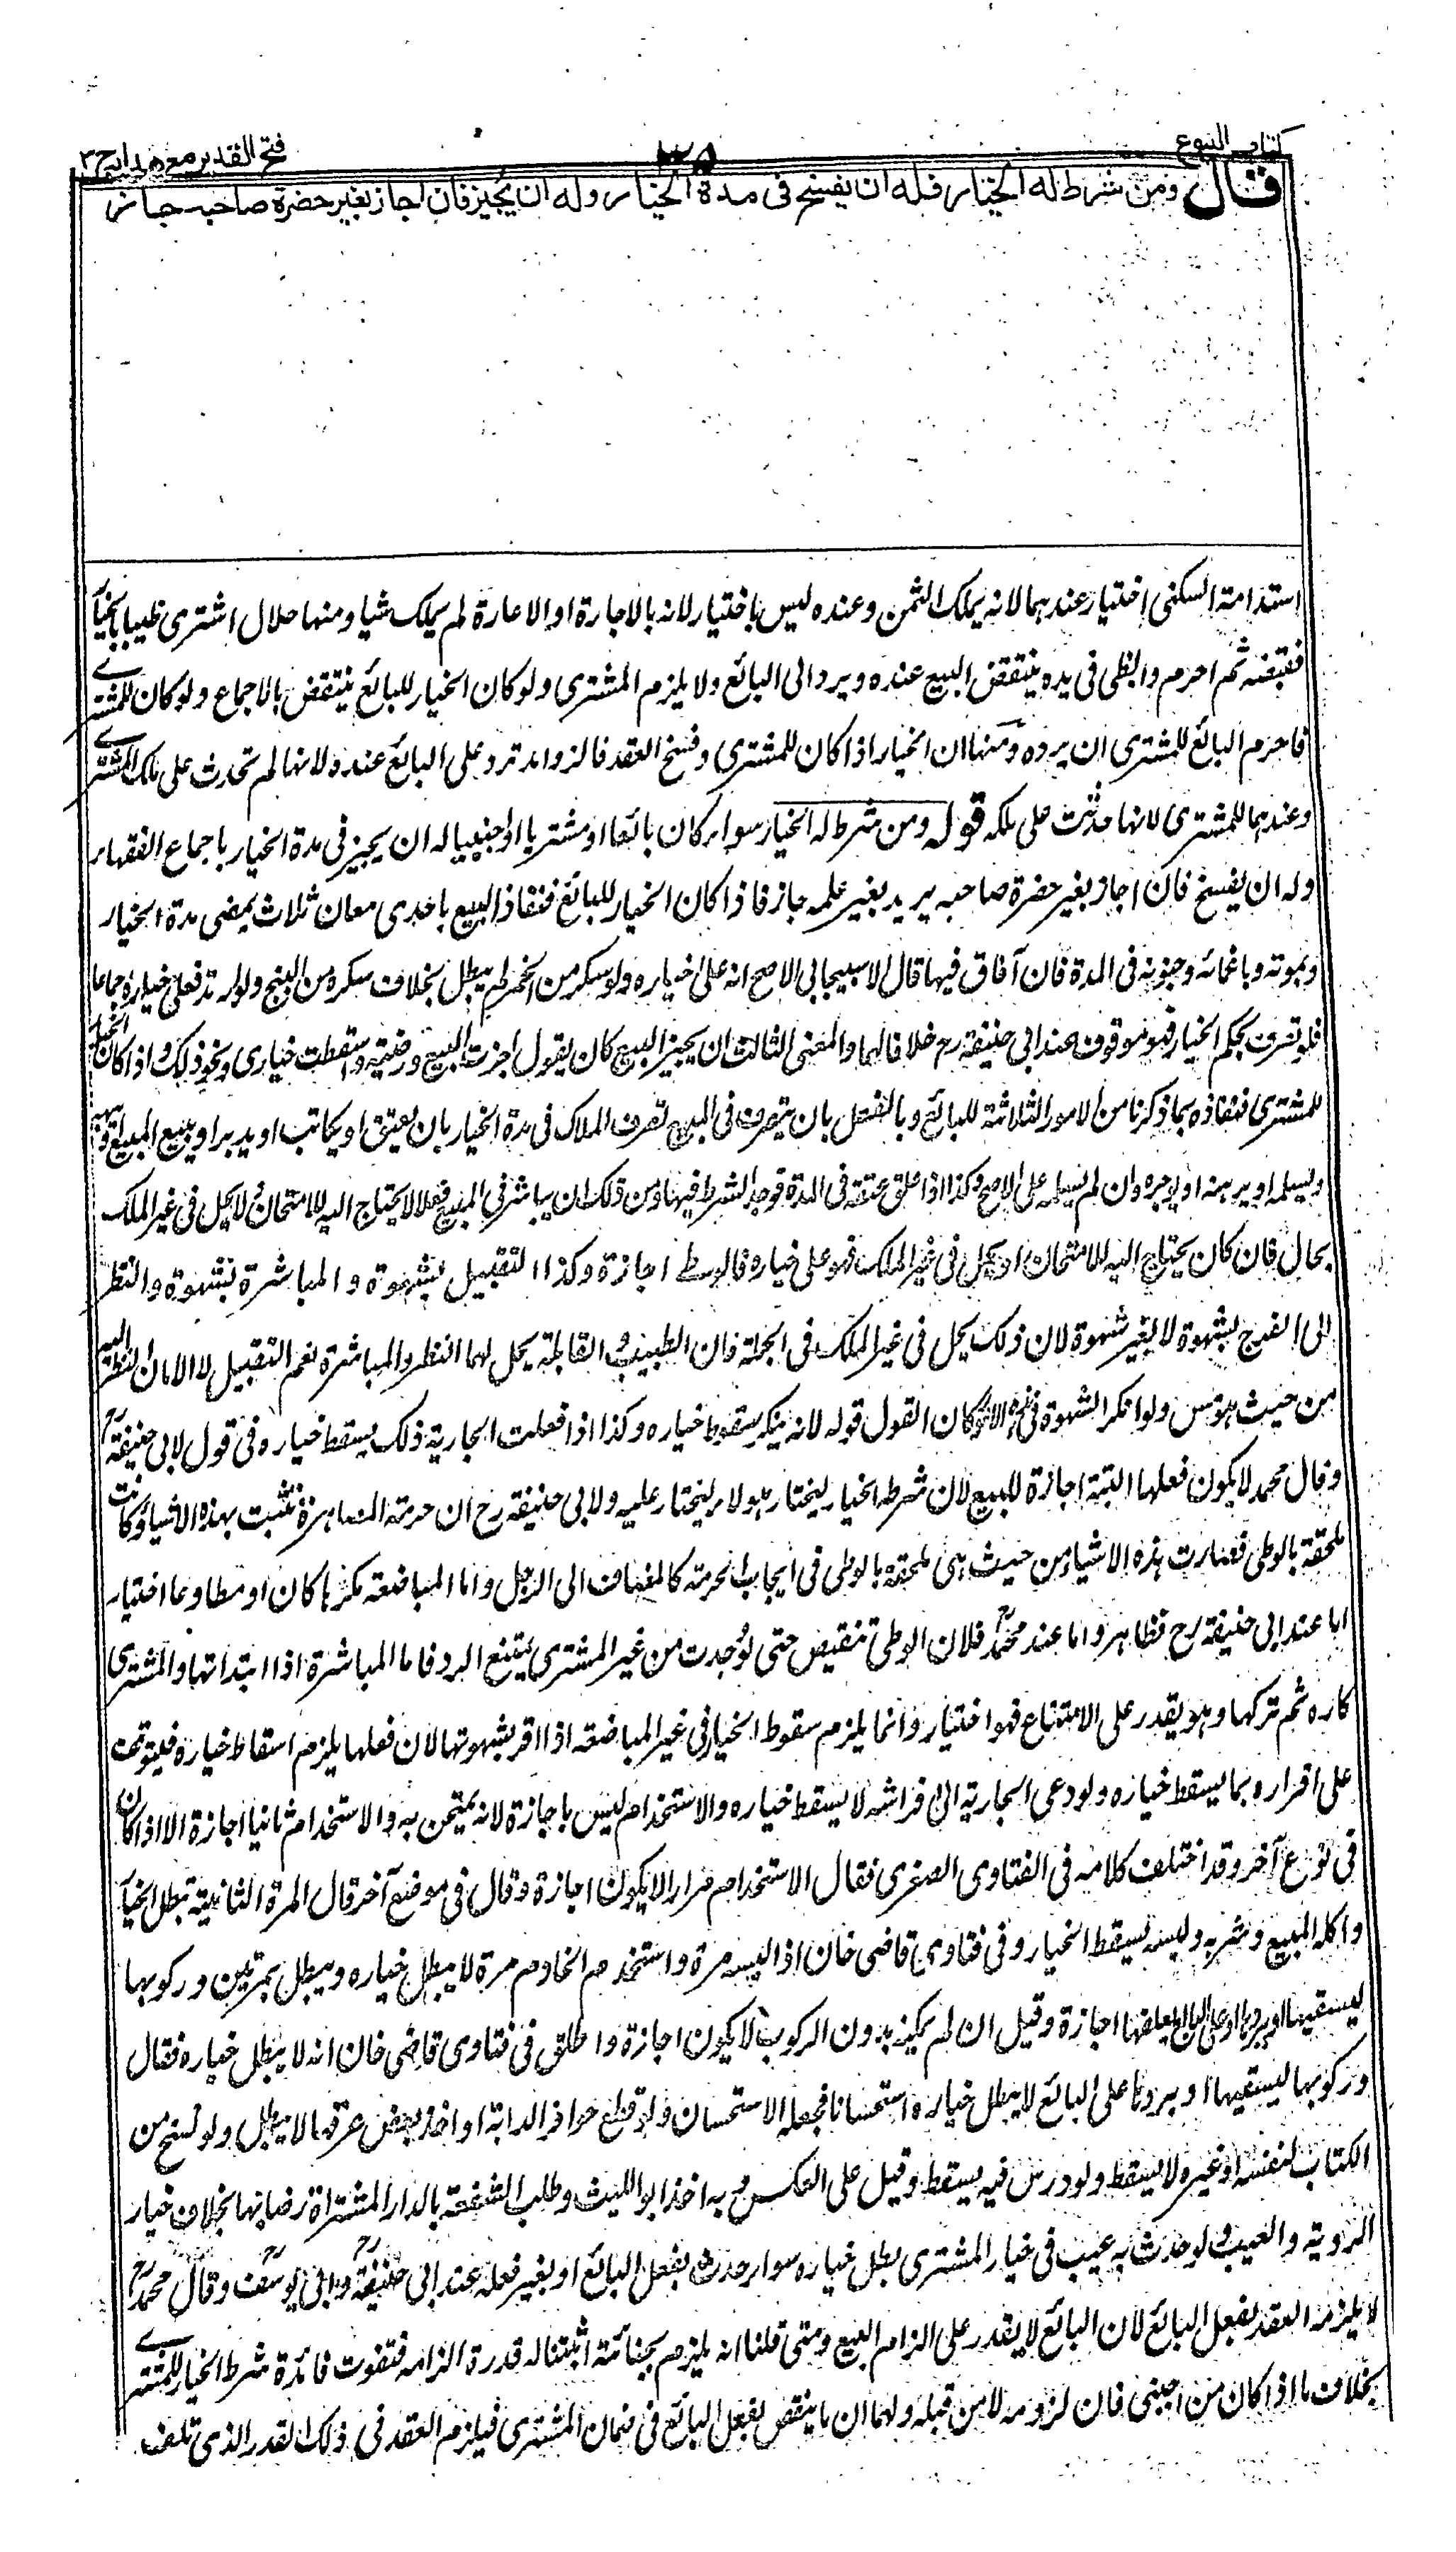 كتاب البيوع
٢٥
فتح القدير مع هدايه ج ٣
قال ومن شرط له الخيار فله ان يفسخ فى مدة الخيار وله ان يجيز فان اجاز بغير حضرة صاحبه جاز
استدامة السكنى اختيار عندهما لانه يملك الثمن وعنده ليس باختيار لانه بالاجارة او الاعارة لم يملك شيا ومنها حلال اشترى ظبيا بالخيار
فقبضه ثم احرم والظبى فى يده ينتقض البيع عنده ويرد الى البائع ولا يلزم المشترى ولو كان الخيار للبائع ينتقض بالاجماع ولو كان للمشترے
فاحرم البائع للمشترى ان يرده ومنها ان الخيار اذا كان للمشترى وفسخ العقد فالزوائد ترد على البائع عنده لانها لم تحدث على ملك المشترے
وعندهما للمشترى لانها حدثت على ملكه قوله ومن شرط له الخيار سواء كان بائعا او مشتريا او اجنبيا له ان يجيز فى مدة الخيار باجماع الفقهاء
وله ان يفسخ فان اجاز بغير حضرة صاحبه يريد بغير علمه جاز فاذا كان الخيار للبائع فنفاذ البيع باحدى معان ثلاث بمضى مدة الخيار
وبموته وباغمائه وجنونه فى المدة فان آفاق فيها قال الاسبيجابى الاصح انه على خياره ولو سكر من الخمر لم يبطل بخلاف سكره من البنج ولو ارتد فعلى خياره اجماعا
فلو تصرف بحكم الخيار فهو موقوف عند ابى حنيفة رح خلافا لهما والمعنى الثالث ان يجيز البيع كان يقول اجزت البيع ورضيته واسقطت خيارى ونحو ذلك واذا كان الخيار
للمشترى فنفاذه بما ذكرنا من الامور الثلاثة للبائع وبالفعل بان يتصرف فى المبيع تصرف الملاك فى مدة الخيار بان يعتق او يكاتب او يدبر او يبيع المبيع او يهبه
ويسلمه او يرهنه او يوجره وان لم يسلمه على الاصح وكذا اذا علق عتقه فى المدة فوجد الشرط فيها ومن ذلك ان يباشر فى المبيع فعلا لا يحتاج اليه للامتحان ولا يحل فى غير الملك
بحال فان كان يحتاج اليه للامتحان او يحل فى غير الملك فهو على خياره فالوطے اجازة وكذا التقبيل بشهوة والمباشرة بشهوة والنظر
الى الفرج بشهوة لا لغير شهوة لان ذلك يحل فى غير الملك فى الجملة فان الطبيب والقابلة يحل لهما النظر والمباشرة نعم التقبيل لا الا ان اليه
من حيث هو مس ولو انكر الشهوة فى كان القول قوله لانه ينكر سقوط خياره وكذا اذا فعلت الجارية ذلك يسقط خياره فى قول لابى حنيفة رح
وقال محمد لا يكون فعلها البتة اجازة للبيع لان شرط الخيار ليختار هو لا ليختار عليه ولابى حنيفة رح ان حرمة المصاهرة تثبت بهذه الاشياء وكانت
ملحقة بالوطى فصارت هذه الاشياء من حيث هى ملحقه بالوطى فى ايجاب الحرمة كالمضاف الى الرجل واما المباضعه مكرها كان او مطاوعا اختيار
اما عند ابى حنيفة رح فظاهر واما عند محمد رح فلان الوطى تنقيص حتى لو وجدت من غير المشترى يمتنع الرد فاما المباشرة اذا ابتداتها والمشترى
كاره ثم تركها وهو يقدر على الامتناع فهو اختيار وانما يلزم سقوط الخيار فى غير المباضعه اذا اقر بشهوتها لان فعلها يلزم اسقاط خياره فيتوقف
على اقراره بما يسقط خياره ولو دعى الجارية الى فراشه لا يسقط خياره والاستخدام ليس باجازة لانه يمتحن به والاستخدام ثانيا اجازة الا اذا كان
فى نوع آخر وقد اختلف كلامه فى الفتاوى الصغرى فقال الاستخدام مرارا لا يكون اجازة وقال فى موضع آخر قال المرة الثانية تبطل الخيار
واكله المبيع وشربه ولبسه يسقط الخيار وفى فتاوى قاضى خان اذا لبسه مرة واستخدم الخادم مرة لا يبطل خياره ويبطل بمرتين وركوبها
ليسقيها او يردها او على البائع او يعلفها اجازة وقيل ان لم يمكنه بدون الركوب لا يكون اجازة واطلق فى فتاوى قاضى خان انه لا يبطل خياره فقال
وركوبها ليسقيها او يردها على البائع لا يبطل خياره استحسانا فجعله الاستحسان ولو قطع حوافر الدابة او اخذ بعض عرفها لا يبطل ولو نسخ من
الكتاب لنفسه او غيره لا يسقط ولو درس فيه يسقط وقيل على العكس وبه اخذ ابو الليث وطلب الشفعة بالدار المشتراة رضا بها بخلاف خيار
الروية والعيب ولو حدث به عيب فى خيار المشترى بطل خياره سواء حدث بفعل البائع او بغير فعله عند ابى حنيفة رح وابى يوسف رح وقال محمد رح
لا يلزمه العقد بفعل البائع لان البائع لا يقدر على الزام البيع ومتى قلنا انه يلزم بجنايته اثبتنا له قدرة الزامه فتفوت فائدة شرط الخيار للمشترے
بخلاف ما اذا كان من اجنبى فان لزومه لا من قبله ولهما ان ما ينقض بفعل البائع فى ضمان المشترى فيلزم العقد فى ذلك القدر الذى تلف